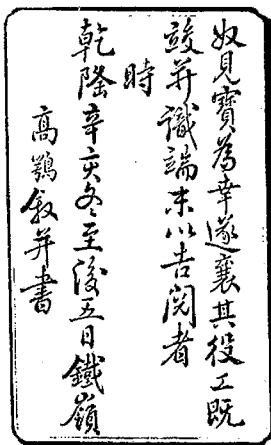 奴見寶為幸遂襄其役工既
竣并識端末以告閱者
時
乾隆辛亥冬至後五日鐵嶺
高鶚叙并書